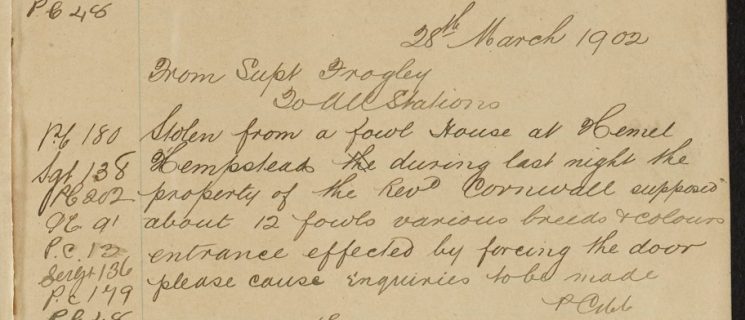 P.C 48
28th March 1902
From Supt Frogley
To All Stations
P.C 180 Stolen from a fowl House at Hemel
Sgt 138 Hempstead the during last night the
PC 202 property of the Revd Cornwall supposed
PC 91 about 12 fowls various breeds & colours
P.C. 12 entrance effected by forcing the door
Sergt 136 please cause Enquiries to be made
P.C 179
P.C 48